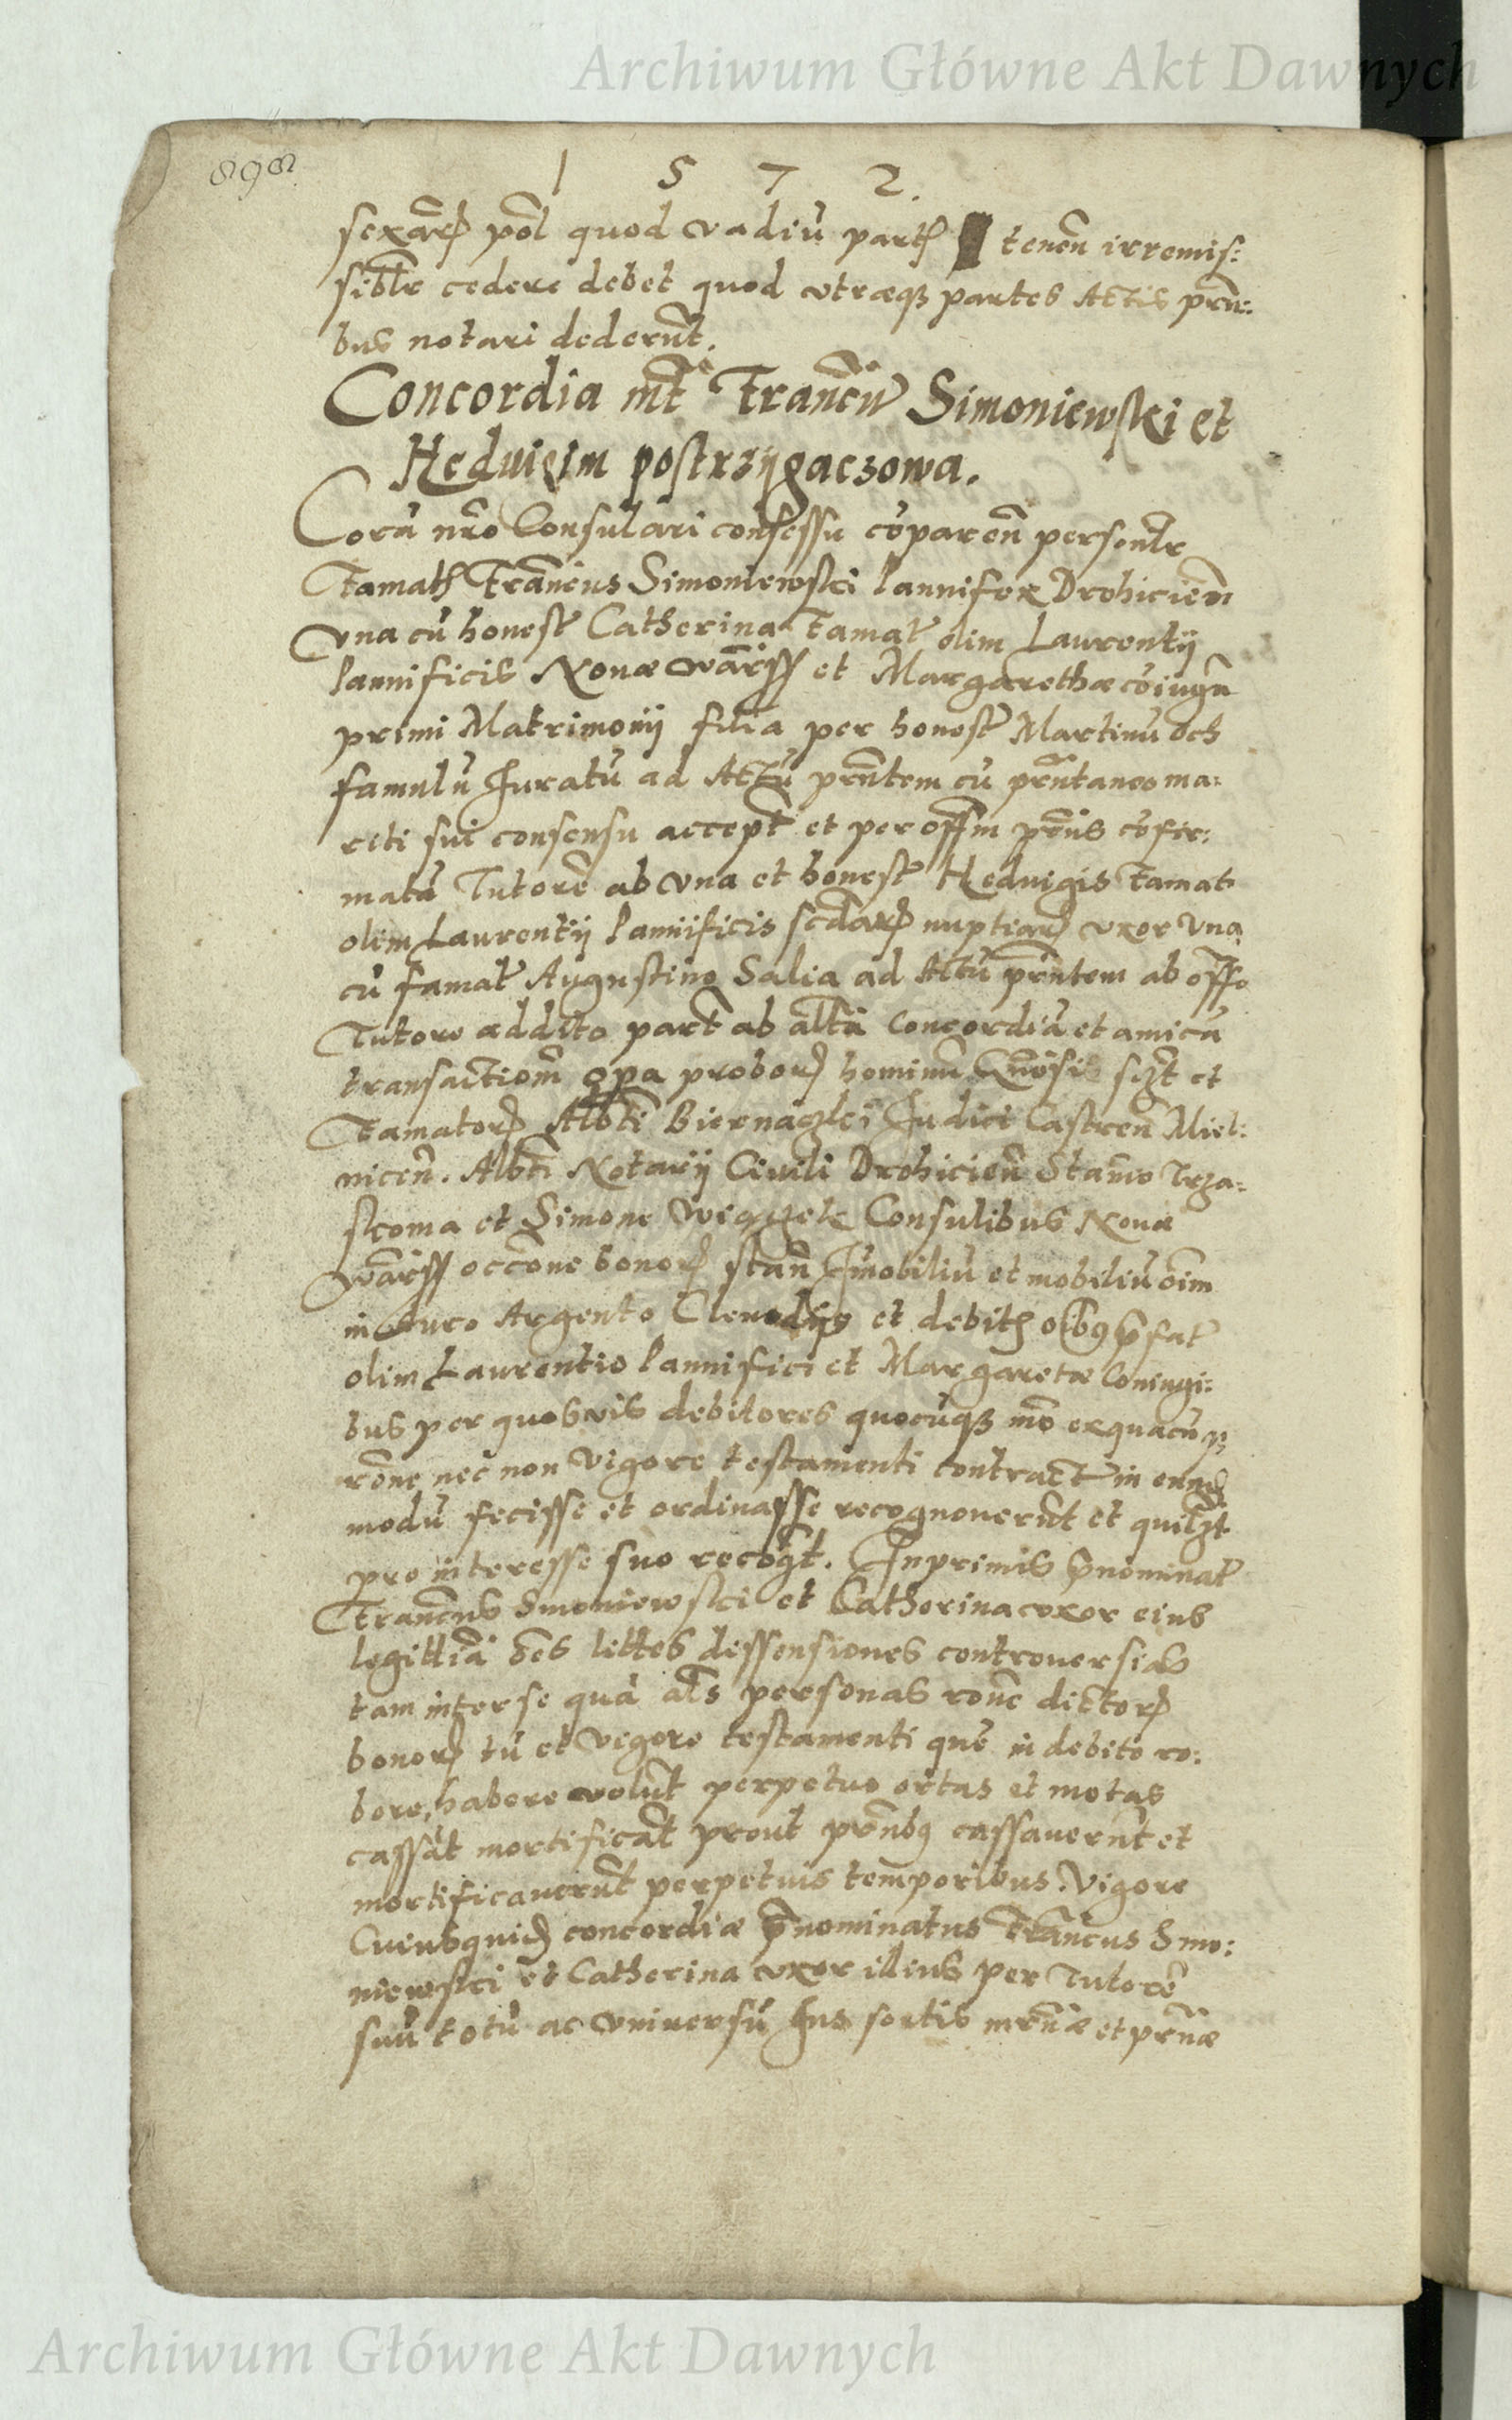 Archiwum Główne Akt Dawnych
898
1 5 7 2.
sexaꝝ pol quod vadiū partꝭ tenen irremis:
siblr cedere debet quod vtræqꝫ partes Actis pñn:
bus notari dederūt.
Concordia int Franciū Simoniewski et
Heduigim postrzÿgaczowa.
Corā nr̄o Consulari consessu cōparen personlr
Famatꝭ Frāncius Simoniewski Pannifex Drohicien
vna cū honesta Catherina Famati olim Laurentii
Pannificis Nouæ Wārss et Margarethæ cōiugū
primi Matrimonij filia per honestū Martinū Och
famulū Iuratū ad Actū pn̄tem cū pn̄taneo ma:
riti sui consensu accept et per offm pn̄s cōfir:
matū Tutorē ab vna et honesta Heduigis Famati
olim Laurentij Pannificis scdaꝝ nuptiaꝝ vxor vna
cū famato Augustino Salia ad Actū pn̄tem ab offo
Tutore addito part ab altā Concordiā et amicā
transactionem proboꝝ hominū sczt et
Famatoꝝ Albti Biernaczki Iudici Castren Miel:
nicen. Albti Notarij Ciuili Drohicien Stanō Trza:
skoma et Simone Consulibus Nouæ
Wārss occōne bonoꝝ stan Imobiliū et mobiliū oīm
in Auro Argento Clenodijs et debitꝭ p̄fat
olim Laurentio Pannifici et Margaretæ Coniugi:
bus per quosvis debitores quocūqꝫ mō ex quacūqꝫ
rōne nec non vigore testamenti contract in eum
modū fecisse et ordinasse recognouerūt et quilzt
pro interesse suo recogt. Inprimis p̄nominat
Francūs Smoniewski et Catherina vxor eius
legittīa oēs dissensiones controuersias
tam inter se quā als personas rōne dictoꝝ
bonoꝝ tū et vigore testamenti que in debito ro:
bore, habere volūt perpetuo ortas et motas
cassāt mortificāt prout pn̄tibꝰ cassauerūt et
mortificauerūt perpetuis temporibus. Vigore
Cuiusquidꝭ concordiæ p̄nominatus Frāncus Smo:
niewski et Catherina vxor illius per Tutorē
suū totū ac vniuersū Ius sortis mr̄næ et pr̄næ
Archiwum Główne Akt Dawnych